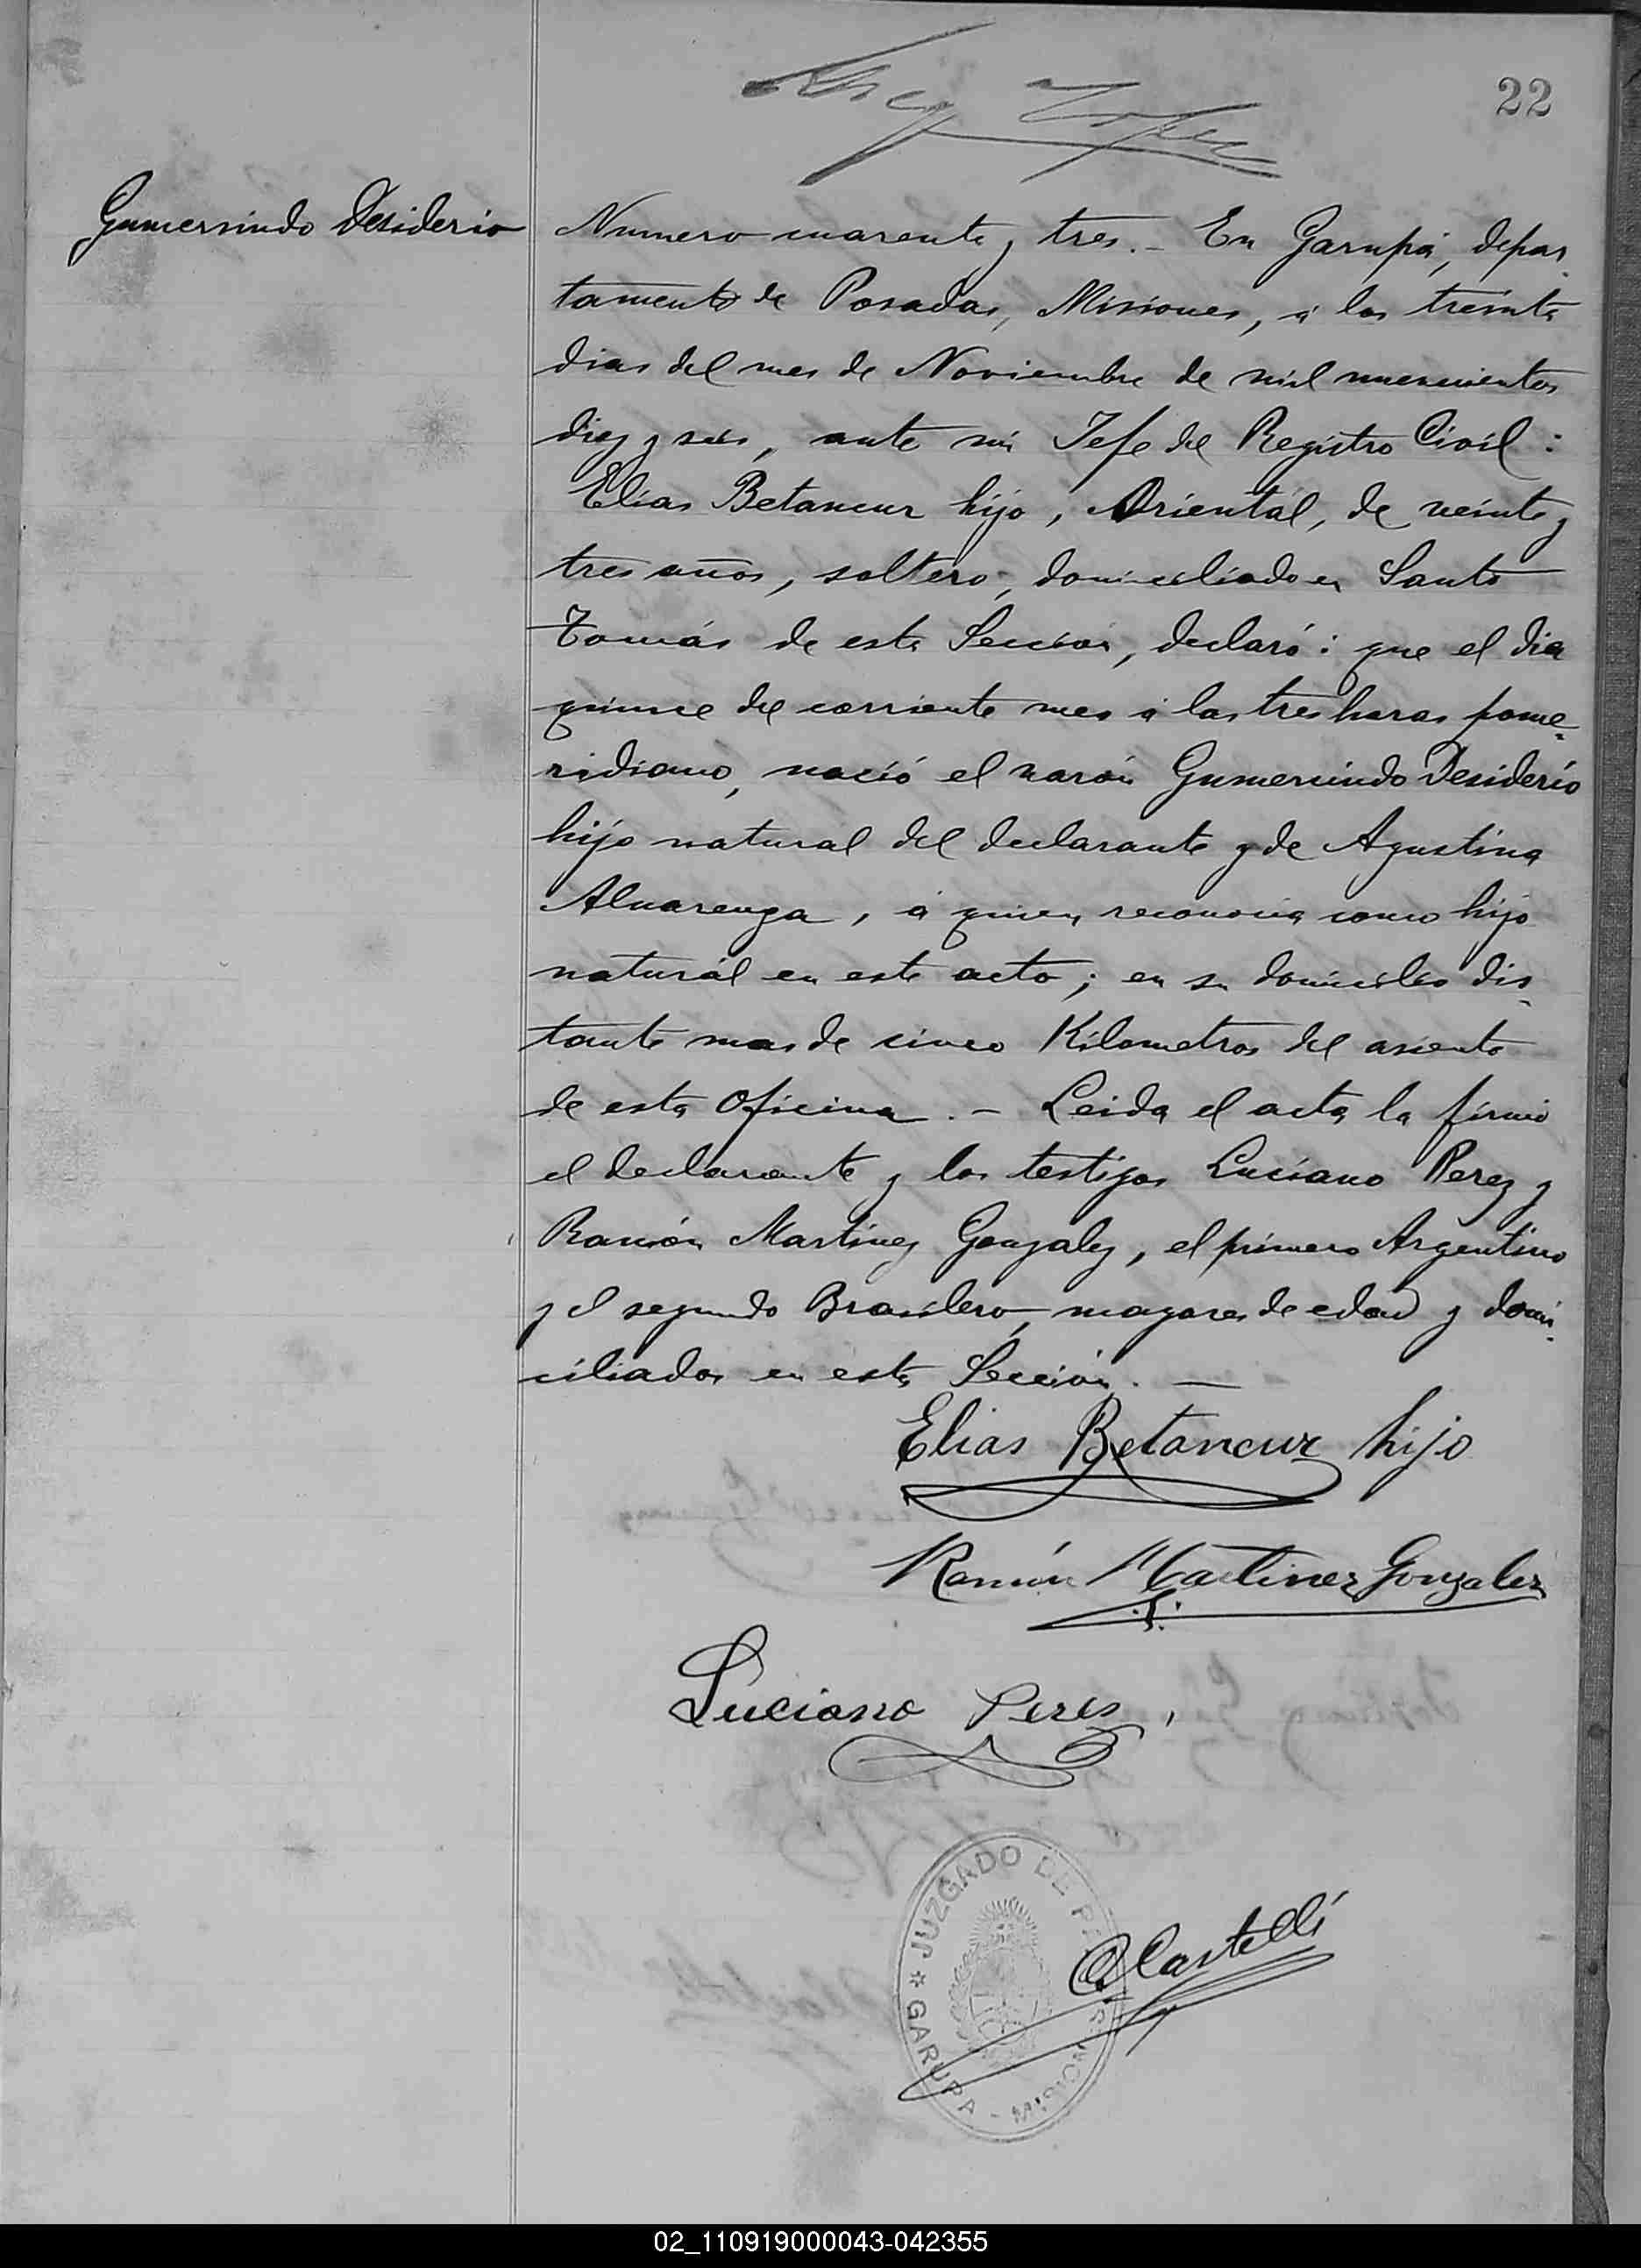 22
Gumersindo Desiderio
Numero cuarenta y tres.- En Garupá, depar
tamento de Posadas, Misiones, á los treinta
dias del mes de Noviembre de mil novecientos
diez y seis, ante mi Jefe del Registro Civil:
Elías Betancur hijo, Oriental, de veinte y
tres años, soltero, domiciliado en Santo
Tomás de esta Sección, declaró: que el dia
quince del corriente mes á las tres horas pome-
ridiano, nació el varón Gumersindo Desiderio
hijo natural del declarante y de Agustina
Alvarenga, á quien reconocia como hijo
natural en este acto; en su domicilio dis-
tante mas de cinco Kilometros del asiento
de esta Oficina.- Leida el acta la firmó
el declarante y los testigos Luciano Perez y
Ramón Martinez Gonzalez, el primero Argentino
y el segundo Brasilero, mayores de edad y domi-
ciliados en esta Sección.-
Elias Betancur hijo
Ramón Martinez Gonzalez
Luciano Peres
JUZGADO DE PAZ
CCastelli
GARUPA - MISIONES
02_110919000043-042355